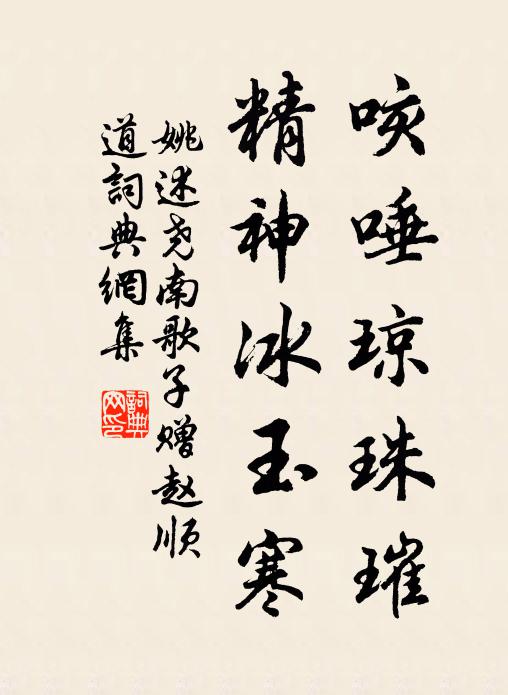 咳唾琼珠璀
精神冰玉寒
姚述尧南歌子赠赵顺
道詞典網集
詞典网印